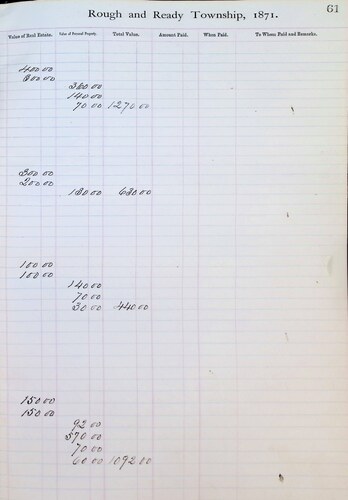 61
Rough and Ready Township, 1871.
Value of Real Estate. Value of Personal Property. Total Value. Amount Paid. When Paid. To Whom Paid and Remarks.
400 00
300 00
360 00
140 00
70 00 1270 00
300 00
200 00
180 00 680 00
100 00
100 00
140 00
70 00
30 00 440 00
150 00
150 00
92 00
570 00
70 00
60 00 1092 00